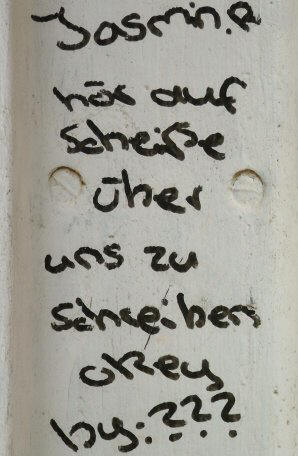 Jasmin.R
hör auf
scheiße
über
uns zu
schreiben
okey
by:???